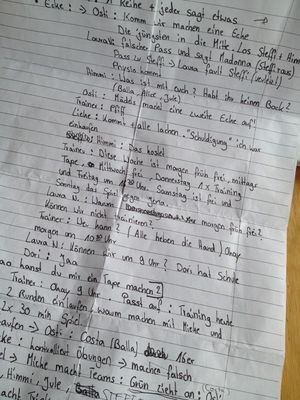 1 Reihe + jeder sagt etwas
Ecke: → Osti: Komm wir machen eine Ecke
Die jüngsten in die Mitte, Los Steffi + Himmi
Laura N: falscher Pass und sagt Madonna (Steffi raus)
Pass zu Steffi → Laura fault Steffi (verletzt)
Physio kommt
Himmi: Was ist mit euch? Habt ihr keinen Bock?
(Balla, Alice, Jule)
Osti: Mädels macht eine zweite Ecke auf!
Trainer: Pfiff
Lieke: Kommt + alle lachen. "Schuldigung", ich war
einkaufen
Himmi: Das kostet
Trainer: Diese Woche ist morgen früh frei, mittags
Tape, Mittwoch frei, Donnerstag 1x Training
und Freitag um 10:30 Uhr. Samstag ist frei und
Sonntag das Spiel gegen Jena.
Laura N.: Warum morgen früh frei?
Können wir nicht trainieren?
Trainer: Ue kann? (Alle heben die Hand) Okay
morgen um 10:30 Uhr
Laura N: Können wir um 9 Uhr? Dori hat Schule
Dori: Jaa
kannst du mir ein Tape machen?
Trainer: Okay 9 Uhr. Passt auf: Training heute
2 Runden einlaufen, warum machen mit Mieke und
2x 30 min Spiel
→ Osti: Costa (Balla) 16er
kontrolliert Übungen → machen falsch
→ Mieke macht Teams: Grün zieht an:
Himmi, Jule,